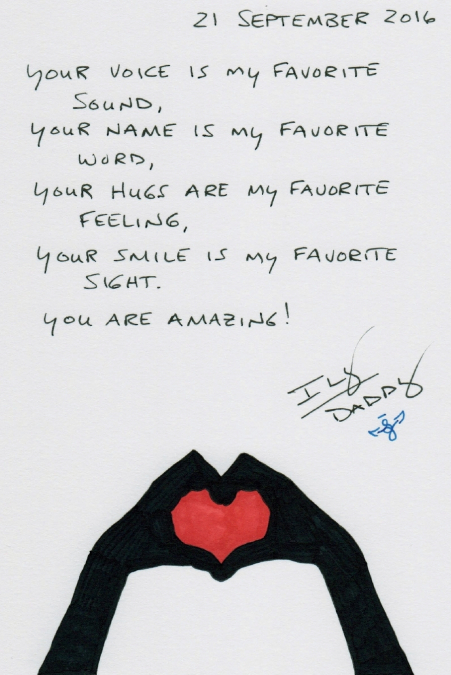 21 SEPTEMBER 2016
YOUR VOICE IS MY FAVORITE
SOUND,
YOUR NAME IS MY FAVORITE
WORD,
YOUR HUGS ARE MY FAVORITE
FEELING,
YOUR SMILE IS MY FAVORITE
SIGHT.
YOU ARE AMAZING!
ILY
DADDY